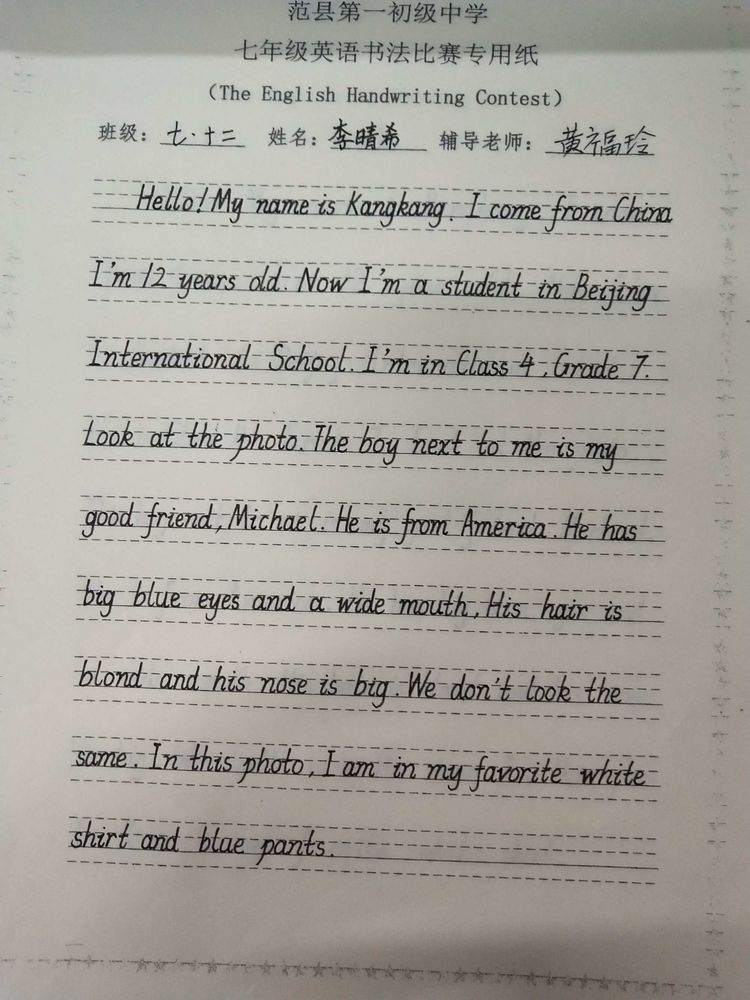 范县第一初级中学
七年级英语书法比赛专用纸
(The English Handwriting Contest)
班级: 七·十二 姓名: 李晴希 辅导老师: 黄福玲
Hello! My name is Kangkang. I come from China
I'm 12 years old. Now I'm a student in Beijing
International School. I'm in Class 4, Grade 7.
Look at the photo. The boy next to me is my
good friend, Michael. He is from America. He has
big blue eyes and a wide mouth, His hair is
blond and his nose is big. We don't look the
same. In this photo, I am in my favorite white
shirt and blue pants.